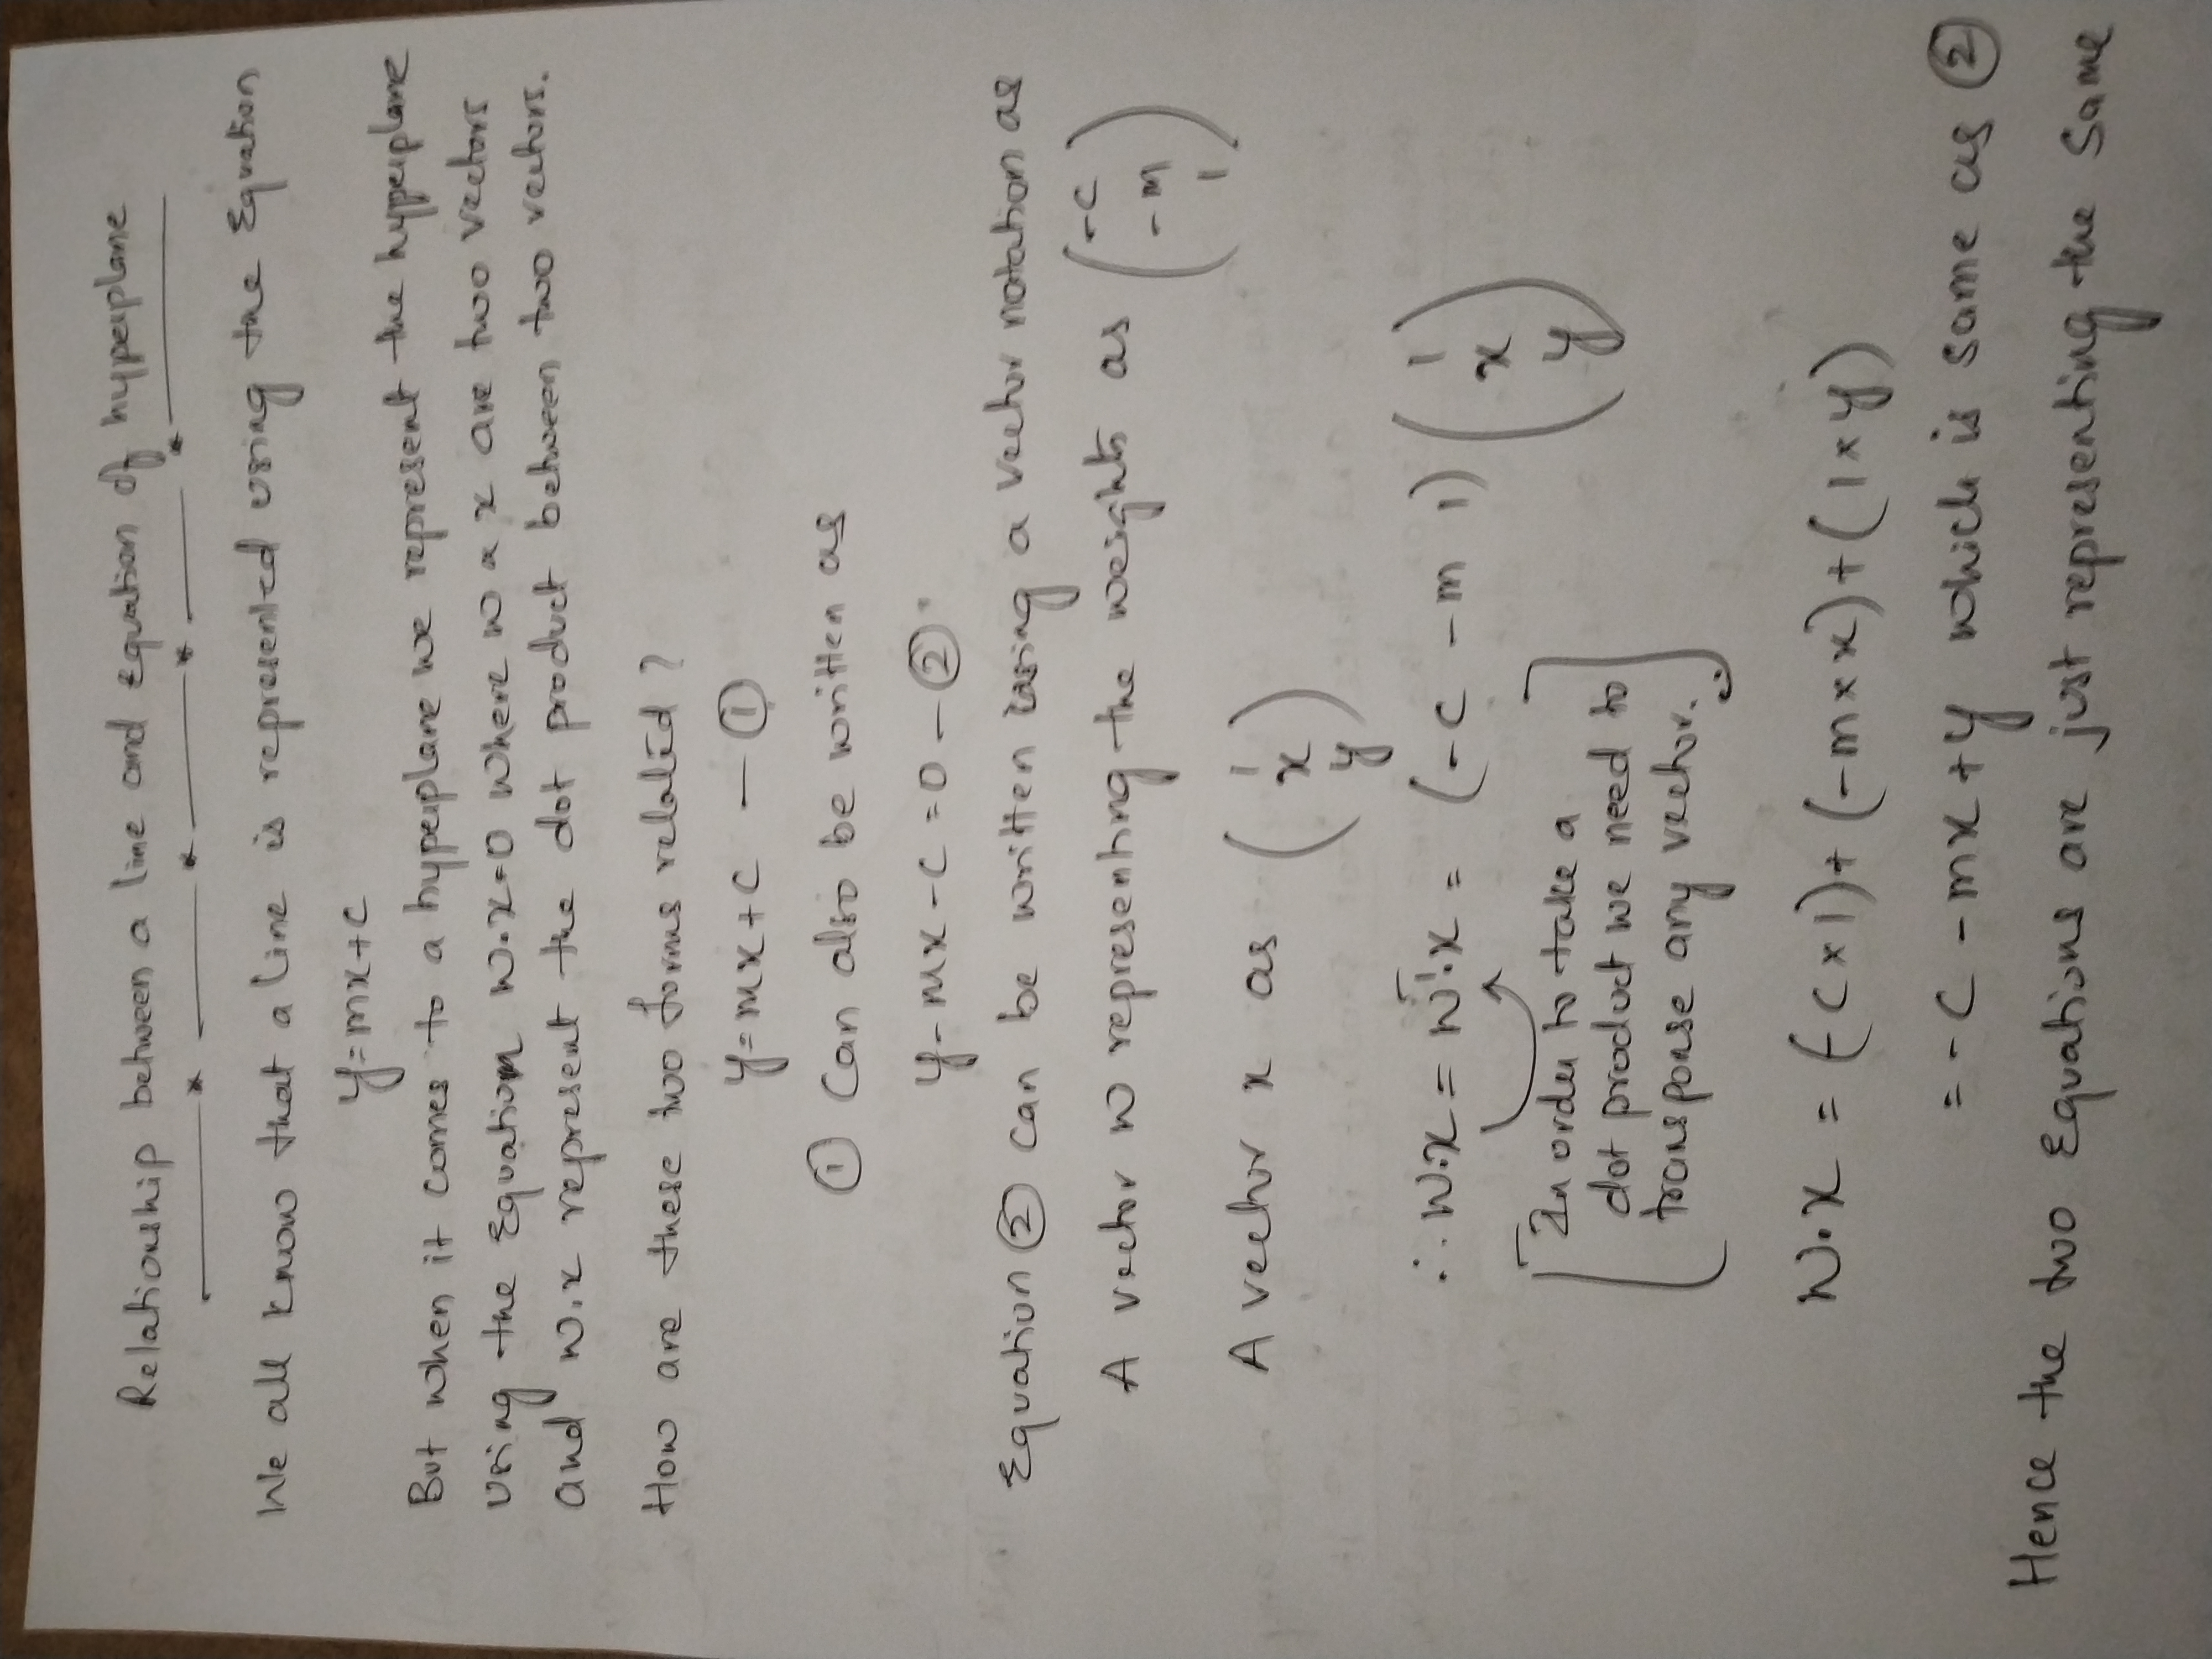 Relationship between a line and Equation of hyperplane
We all know that a line is represented using the Equation
y=mx+c
But when it comes to a hyperplane we represent the hyperplane
Using the Equation w.x=0 where w & x are two vectors
and w.x represent the dot product between two vectors.
How are these two forms related?
y=mx+c — ①
① Can also be written as
y-mx-c=0 — ②
Equation ② can be written using a vector notation as
A vector w representing the weights as (-c -m 1)
A vector x as (1 x y)
∴ w.x = wᵀ.x = (-c -m 1) (1 x y)
[In order to take a
dot product we need to
transponse any vector.]
w.x = (-c×1)+(-m×x)+(1×y)
= -c -mx+y which is same as ②
Hence the two Equations are just representing the same